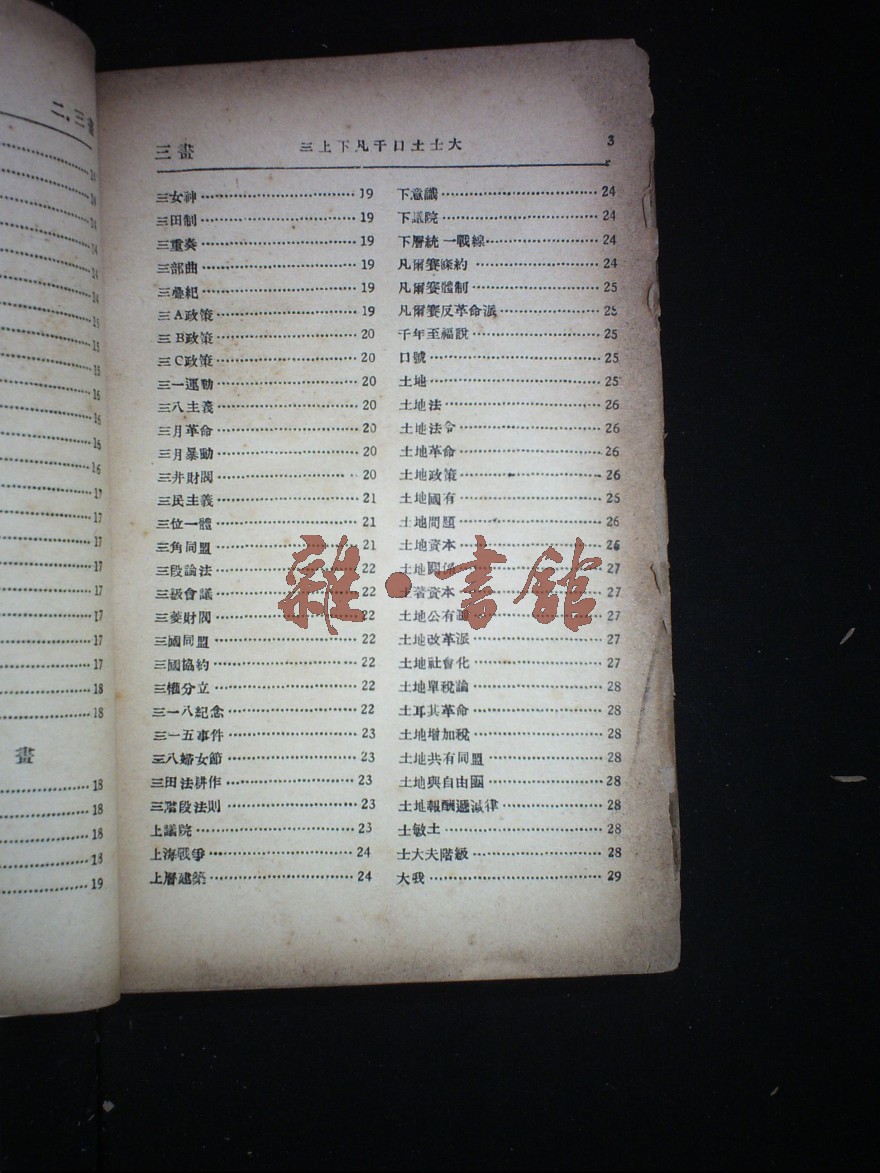 二.三畫
16
17
17
17
17
17
17
17
17
18
18
畫
18
18
18
18
19
三畫 三上下凡千口土士大 3
三女神 19
三田制 19
三重奏 19
三部曲 19
三疊紀 19
三A政策 19
三B政策 20
三C政策 20
三一運動 20
三八主義 20
三月革命 20
三月暴動 20
三井財閥 20
三民主義 21
三位一體 21
三角同盟 21
三段論法 22
三級會議 22
三菱財閥 22
三國同盟 22
三國協約 22
三權分立 22
三一八紀念 22
三一五事件 23
三八婦女節 23
三田法耕作 23
三階段法則 23
上議院 23
上海戰爭 24
上層建築 24
下意識 24
下議院 24
下層統一戰線 24
凡爾賽條約 24
凡爾賽體制 25
凡爾賽反革命派 25
千年至福說 25
口號 25
土地 25
土地法 26
土地法令 26
土地革命 26
土地政策 26
土地國有 26
土地問題 26
土地資本 26
土地關係 27
土著資本 27
土地公有 27
土地改革派 27
土地社會化 27
土地單稅論 28
土耳其革命 28
土地增加稅 28
土地共有同盟 28
土地與自由團 28
土地報酬遞減律 28
士敏土 28
士大夫階級 28
大我 29
雜·書館